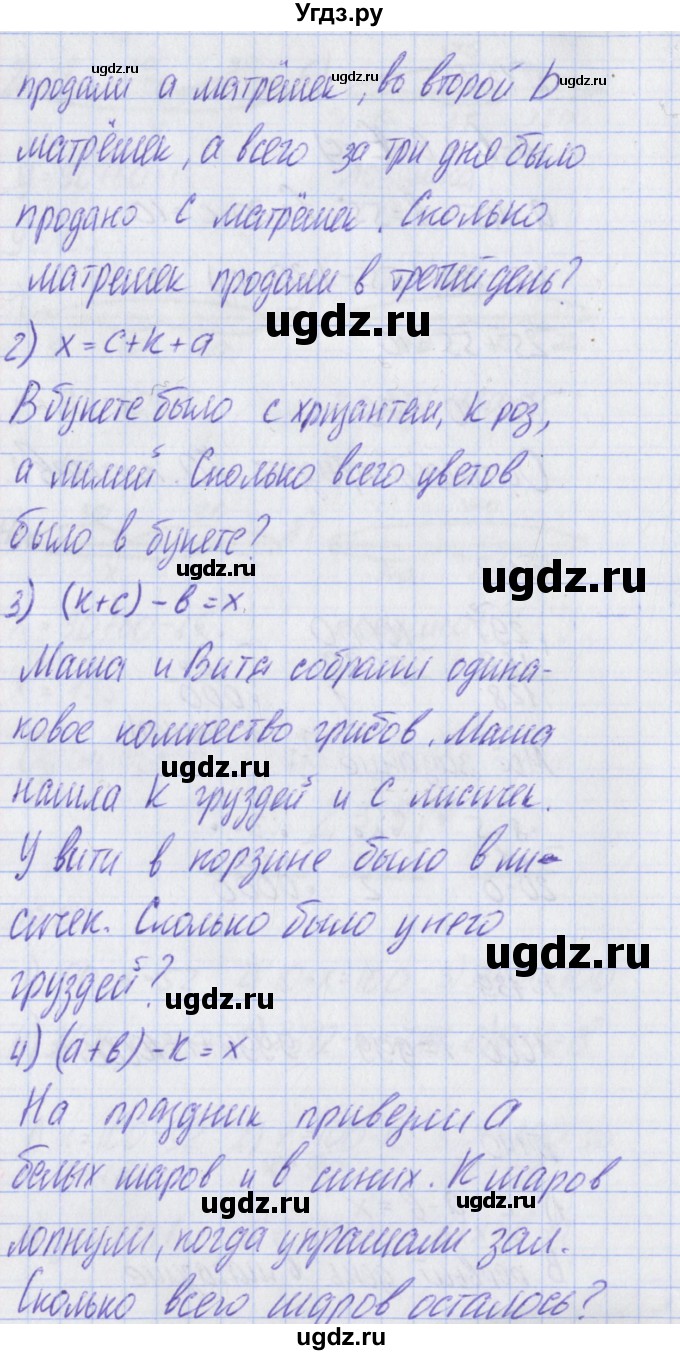 Угдз.ру
продали а матрёшек, во второй b
матрёшек, а всего за три дня было
продано с матрёшек. Сколько
матрешек продали в третий день?
2) х = с+к+а
В букете было с хризантем, к роз,
а лилий. Сколько всего цветов
было в букете?
3) (к+с) - в = х.
Маша и Витя собрали одина-
ковое количество грибов. Маша
нашла к груздей и с лисичек.
У Вити в корзине было в ли-
сичек. Сколько было у него
груздей?
4) (а+в) - к = х
На праздник привезли а
белых шаров и в синих. К шаров
лопнули, когда украшали зал.
Сколько всего шаров осталось?
ugdz.ru
ugdz.ru
ugdz.ru
ugdz.ru
ugdz.ru
ugdz.ru
ugdz.ru
ugdz.ru
ugdz.ru
ugdz.ru
ugdz.ru
ugdz.ru